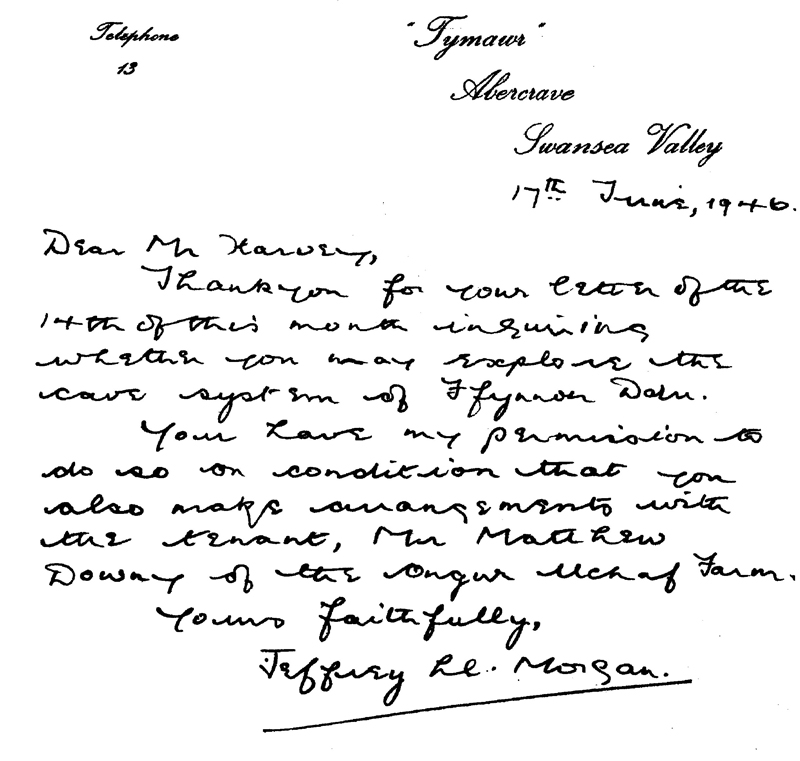 Telephone
13
"Tymawr"
Abercrave
Swansea Valley
17th June, 1946.
Dear Mr Harvey,
Thankyou for your letter of the
14th of this month inquiring
whether you may explore the
cave system of Ffynnon Ddu.
You have my permission to
do so on condition that you
also make arrangements with
the tenant, Mr Matthew
Downy of the Uchaf Farm.
Yours faithfully,
Jeffrey Ll. Morgan.